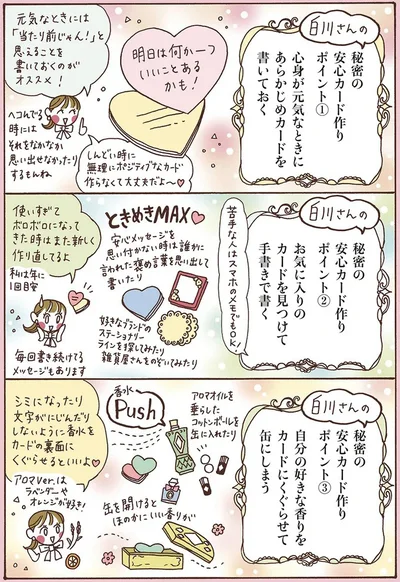 白川さんの
秘密の
安心カード作り
ポイント①
心身が元気なときに
あらかじめカードを
書いておく
明日は何か一つ
いいことある
かも!
元気なときには
「当たり前じゃん!」と
思えることを
書いておくのが
オススメ!
ヘコんでる
時には
それをなかなか
思い出せなかったり
するもんね
しんどい時に
無理にポジティブなカード
作らなくて大丈夫だよ〜♡
白川さんの
秘密の
安心カード作り
ポイント②
お気に入りの
カードを見つけて
手書きで書く
苦手な人はスマホのメモでもOK!
ときめきMAX♡
安心メッセージを
思い付かない時は誰かに
言われた褒め言葉を思い出して
書いたり
好きなブランドの
ステーショナリー
ラインを探してみたり
雑貨屋さんをのぞいてみたり
使いすぎて
ボロボロになって
きた時はまた新しく
作り直してるよ
私は年に
1回目安
毎回書き続けてる
メッセージもあります
白川さんの
秘密の
安心カード作り
ポイント③
自分の好きな香りを
カードにくぐらせて
缶にしまう
香水
Push
アロマオイルを
垂らした
コットンボールを
缶に入れたり
缶を開けると
ほのかにいい香りが
シミになったり
文字がにじんだり
しないように香水を
カードの裏面に
くぐらせるといいよ♡
アロマVer.は
ラベンダーや
オレンジが好き!